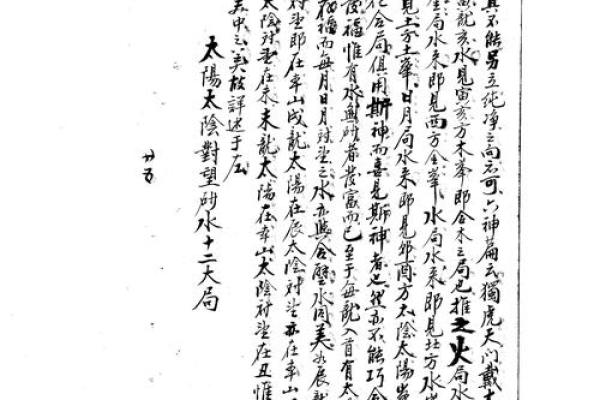 其不能另立純淨之向不可六神篇云獨虎天门戴
寅龍亥水見寅亥方木峯即合木之局也推之火局水
金局水来即見西方金峯水局水来即見北方水
見土方土峯日月局水来即見卯酉方太陰太陽
合局俱用斯神而喜見斯神者也然亦不能巧合
發福惟有水無砂者發富而已至于每龍入首有太
福而每月日月對望之水亦與合壁水同美如辰龍
對望即在辛山戌龍太陽在辰太陰對望亦在辛山
太陰對望在未未龍太陽在辛山太陰對望在丑惟
吴中之美故詳述于左
太陽太陰對望砂水十二大局
廿五